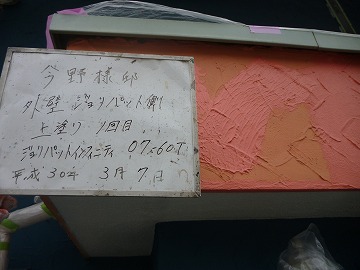 今野様邸
外壁 ジョリパット 側
上塗り 1回目
ジョリパットインフィニティ 07-60T
平成30年 3月 7日